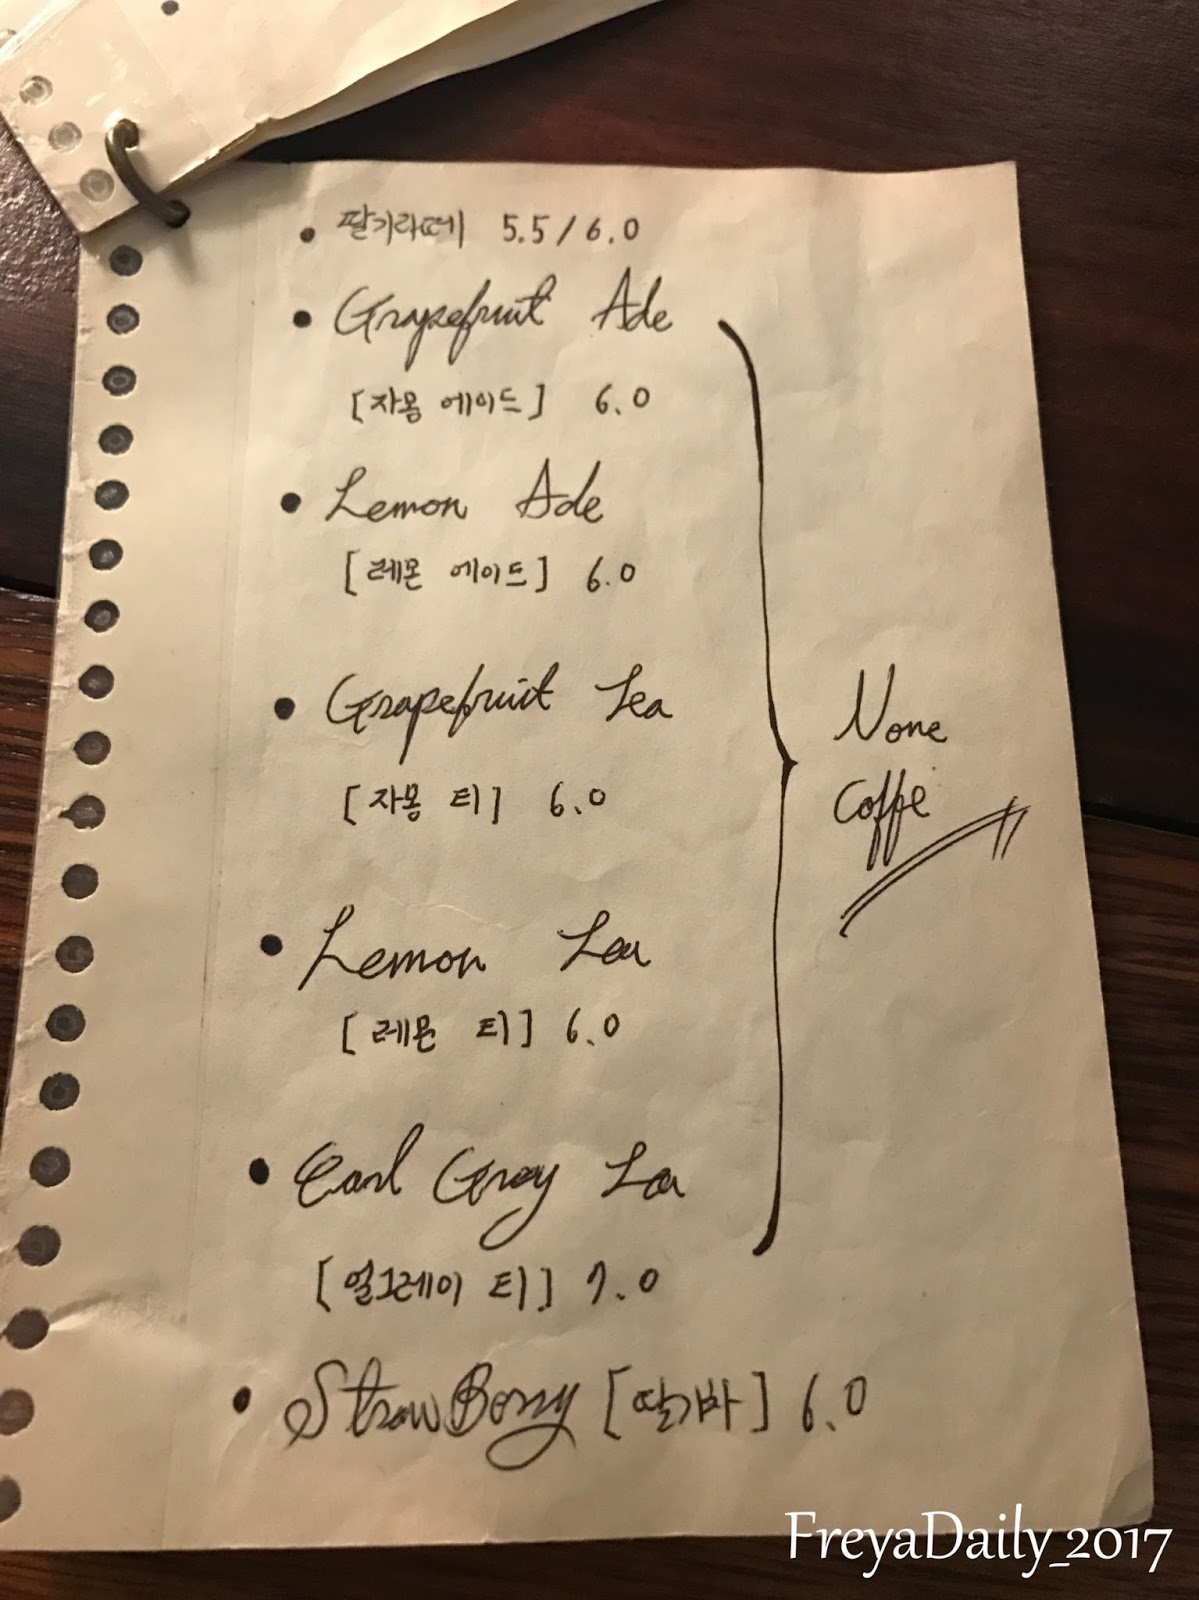 • 딸기라떼 5.5/6.0
• Grapefruit Ade
[자몽 에이드] 6.0
• Lemon Ade
[레몬 에이드] 6.0
• Grapefruit Tea
[자몽 티] 6.0
• Lemon Tea
[레몬 티] 6.0
• Earl Grey Tea
[얼그레이 티] 7.0
• StrawBerry [딸기바] 6.0
None
Coffe
FreyaDaily_2017